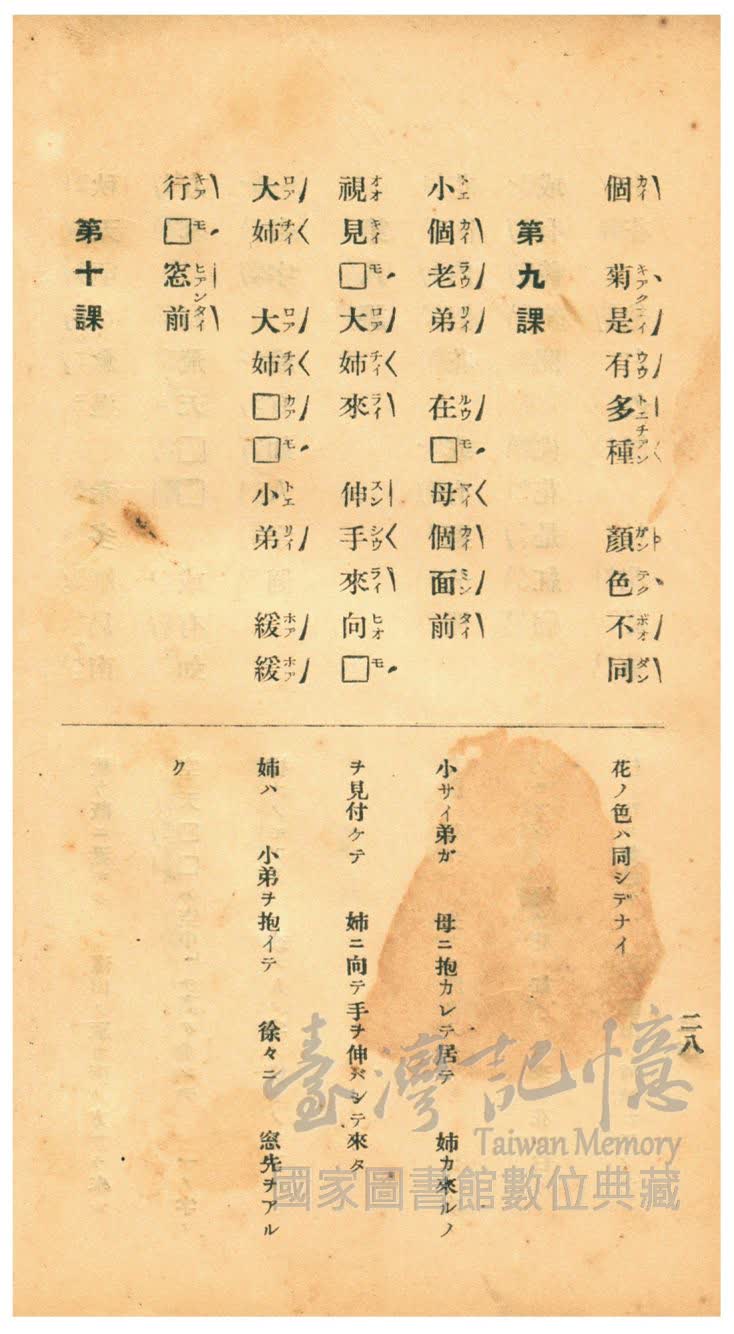 個 菊是有多種 顏色不同
第九課
小個老弟在□母個面前
視見□大姉來 伸手來向□
大姉 大姉□□小弟 緩緩
行□窓前
第十課
花ノ色ハ同シデナイ
小サイ弟ガ 母ニ抱カレテ居テ 姉カ來ルノ
ヲ見付ケテ 姉ニ向テ手ヲ伸バシテ來タ
姉ハ 小弟ヲ抱イテ 徐々ニ 窓先ヲアル
ク
二八
臺灣記憶
Taiwan Memory
國家圖書館數位典藏